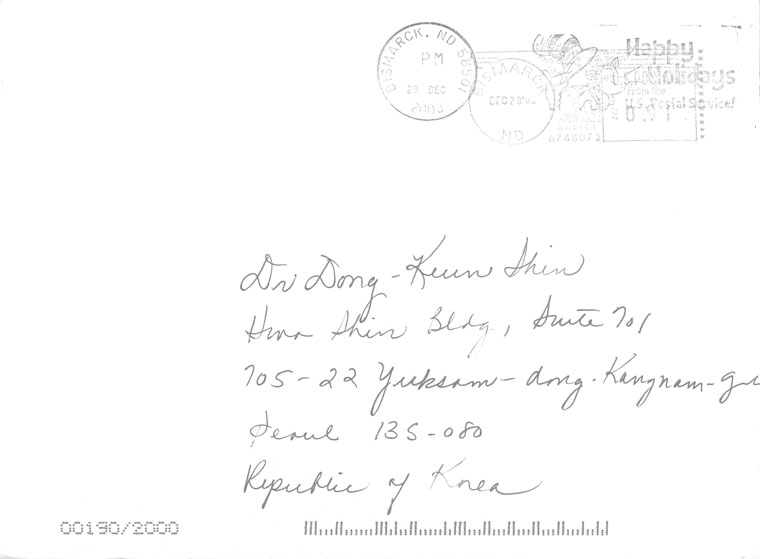 BISMARCK, ND 58501
PM
29 DEC
2003
BISMARCK
DEC 29'03
ND
6748072
Happy
Holidays
from the
U.S. Postal Service!
Dr Dong-Keun Shin
Hwa Shin Bldg, Suite 701
705-22 Yuksam-dong. Kangnam-gu
Seoul 135-080
Republic of Korea
00190/2000